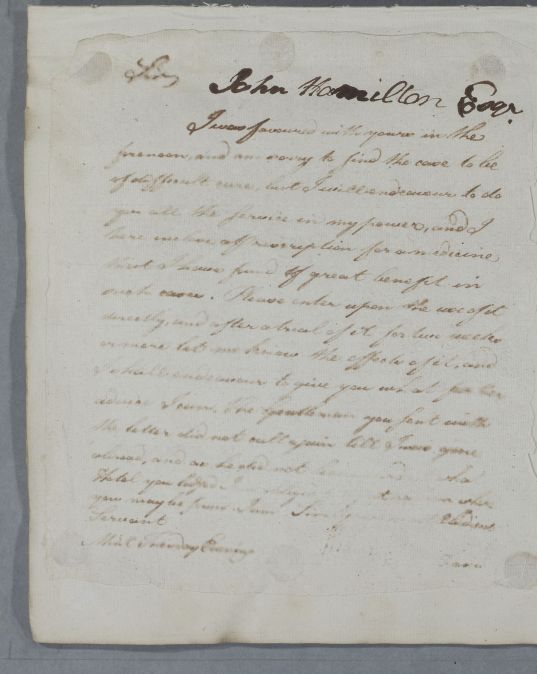 Sir,
John Hamilton Esqr.
I was favoured with yours in the
forenoon, and am sorry to find the case to be
of difficult cure, but I will endeavour to do
you all the service in my power, and I
here inclose a prescription for a medicine
that I have found of great benefit in
such cases. Please enter upon the use of it
directly, and after a trial of it for two weeks
or more let me know the effects of it, and
I shall endeavour to give you what further
advice I can. The Gentleman you sent with
the letter did not call again till I was gone
abroad, and as he did not what
Hotel you lodged I am
you may be found. I am Sir your most Obedient
Servant
Mint Tuesday Evening